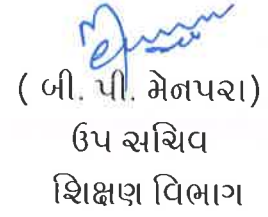 ( બી. પી. મેનપરા)
ઉપ સચિવ
શિક્ષણ વિભાગ